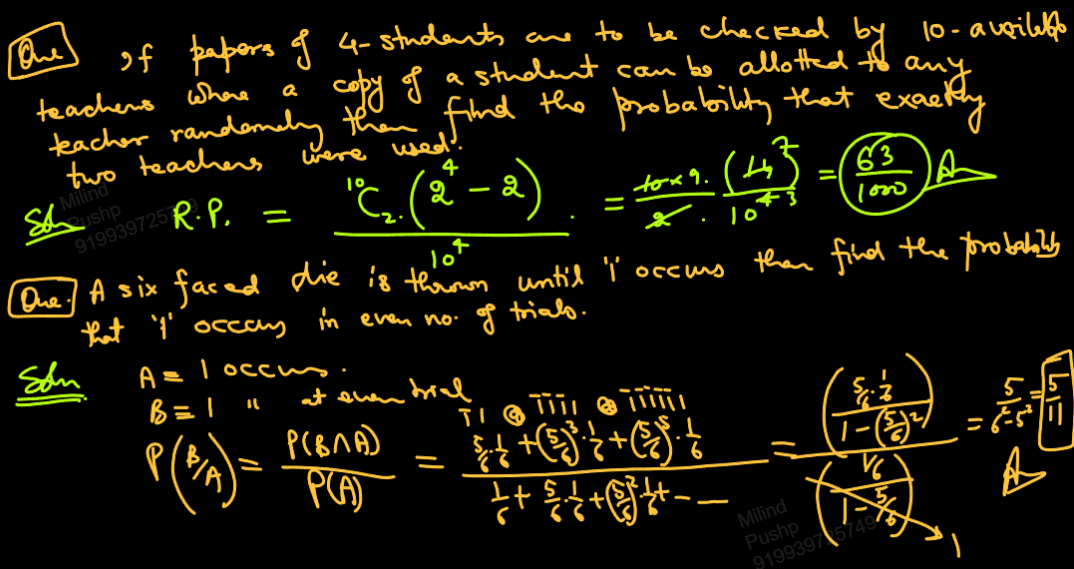 Que If papers of 4-students are to be checked by 10-available
teachers where a copy of a student can be allotted to any
teacher randomely then find the probability that exactly
two teachers were used.
Soln R.P. = ¹⁰C₂.(2⁴ - 2) / 10⁴ = 10×9. / 2 . (14)⁷ / 10⁴ ³ = 63/1000 A
Que. A six faced die is thrown until '1' occurs then find the probability
that '1' occurs in even no. of trials.
Soln A = 1 occurs.
B = 1 " at even trial
P(B/A) = P(B∩A) / P(A) = (5/6·1/6 + (5/6)³·1/6 + (5/6)⁵·1/6) / (1/6 + 5/6·1/6 + (5/6)²·1/6 + - —) = ((5/6·1/6) / (1 - (5/6)²)) / ((1/6) / (1 - 5/6)) → 1 = 5 / (6² - 5²) = 5/11 A
Milind
Pushp
919939725749
Milind
Pushp
919939725749